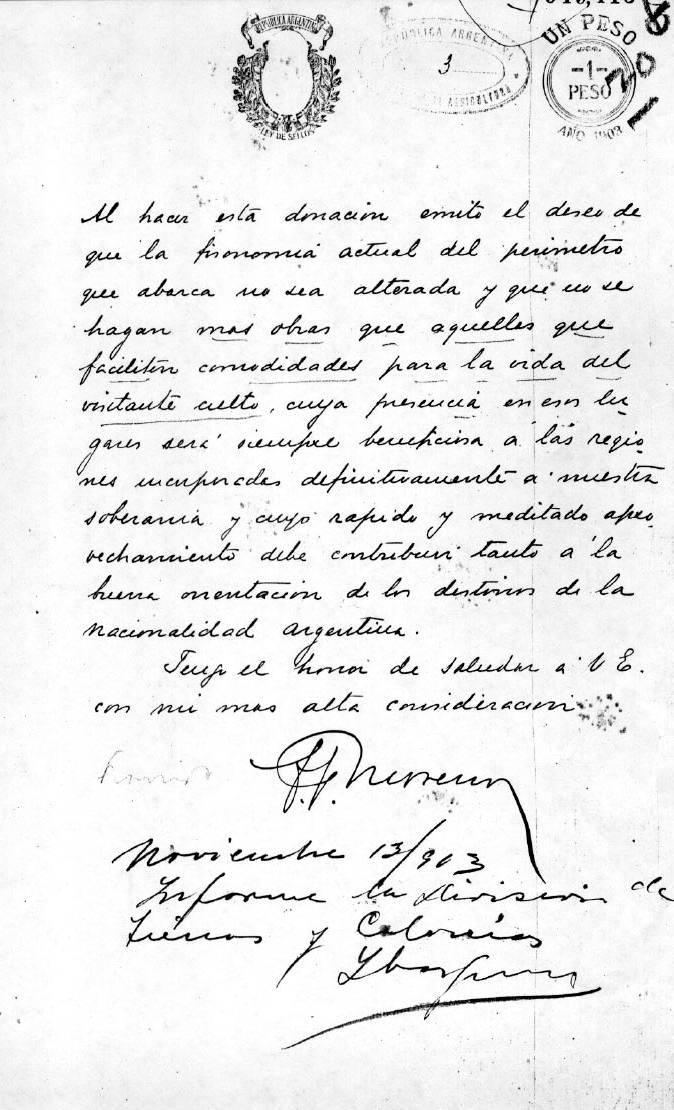 REPUBLICA ARGENTINA
LEY DE SELLOS
REPUBLICA ARGENTINA
3
DE AGRICULTURA
UN PESO
-1-
PESO
AÑO 1903
Al hacer está donación emito el deseo de
que la fisonomia actual del perimetro
que abarca no sea alterada y que no se
hagan mas obras que aquellas que
faciliten comodidades para la vida del
visitante culto, cuya presencia en esos lu-
gares será siempre beneficiosa a las regio-
nes incorporadas definitivamente a nuestra
soberania y cuyo rapido y meditado apro-
vechamiento debe contribuir tanto a la
buena orientación de los destinos de la
nacionalidad Argentina.
Tengo el honor de saludar a V E.
con mi mas alta consideracion
F. P. Moreno
Noviembre 13/903
Informe la Division de
Tierras y Colonias